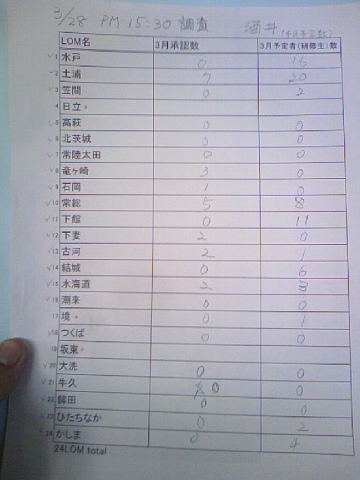 3/28 PM 15:30 調査 酒井 (4月予定数)
LOM名 3月承認数 3月予定者(研修生)数
1 水戸 0 16
2 土浦 7 20
3 笠間 0 2
4 日立
5 高萩 0 0
6 北茨城 0 0
7 常陸太田 0 0
8 竜ヶ崎 3 0
9 石岡 1 0
10 常総 5 8
11 下館 0 11
12 下妻 2 0
13 古河 2 1
14 結城 0 6
15 水海道 2 3
16 潮来 0 0
17 境 0 1
18 つくば 0 0
19 坂東
20 大洗 0 0
21 牛久 0 0
22 鉾田 0 0
23 ひたちなか 0 2
24 かしま 0 4
24LOM total